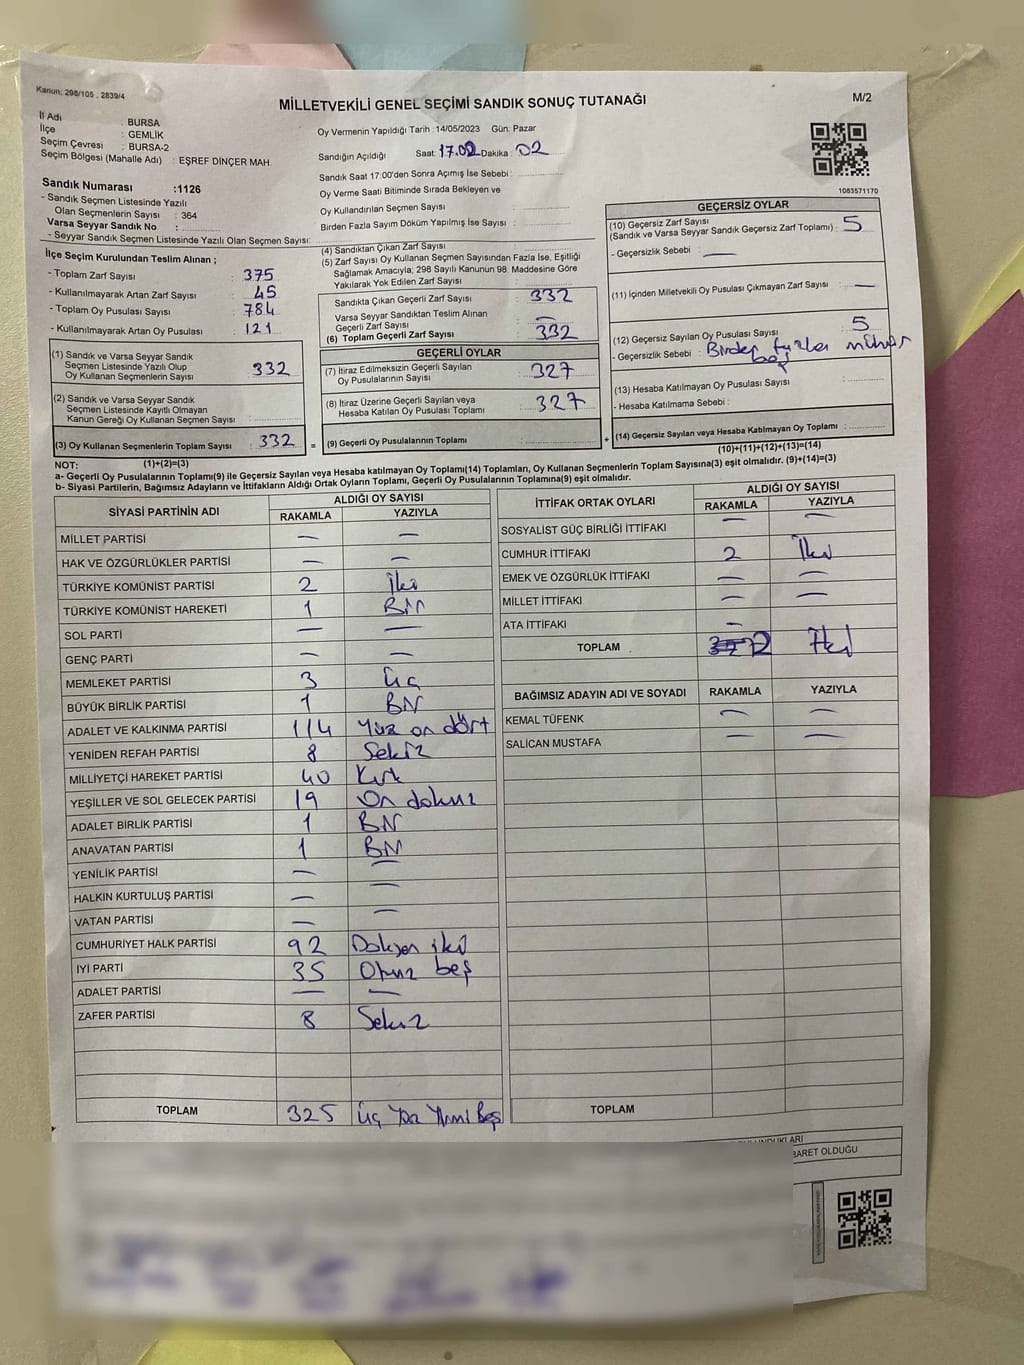 Kanun; 298/105 , 2839/4
MİLLETVEKİLİ GENEL SEÇİMİ SANDIK SONUÇ TUTANAĞI
M/2
İl Adı : BURSA
İlçe : GEMLİK
Seçim Çevresi : BURSA-2
Seçim Bölgesi (Mahalle Adı) : EŞREF DİNÇER MAH.
Oy Vermenin Yapıldığı Tarih : 14/05/2023 Gün: Pazar
Sandığın Açıldığı Saat: 17.02 Dakika : 02
Sandık Saat 17:00'den Sonra Açımış İse Sebebi :
Oy Verme Saati Bitiminde Sırada Bekleyen ve
Oy Kullandırılan Seçmen Sayısı :
Birden Fazla Sayım Döküm Yapılmış İse Sayısı :
1083571170
Sandık Numarası :1126
- Sandık Seçmen Listesinde Yazılı
Olan Seçmenlerin Sayısı : 364
Varsa Seyyar Sandık No :
- Seyyar Sandık Seçmen Listesinde Yazılı Olan Seçmen Sayısı:
İlçe Seçim Kurulundan Teslim Alınan ;
- Toplam Zarf Sayısı : 375
- Kullanılmayarak Artan Zarf Sayısı : 45
- Toplam Oy Pusulası Sayısı : 784
- Kullanılmayarak Artan Oy Pusulası : 121
(1) Sandık ve Varsa Seyyar Sandık
Seçmen Listesinde Yazılı Olup
Oy Kullanan Seçmenlerin Sayısı : 332
(2) Sandık ve Varsa Seyyar Sandık
Seçmen Listesinde Kayıtlı Olmayan
Kanun Gereği Oy Kullanan Seçmen Sayısı :
(3) Oy Kullanan Seçmenlerin Toplam Sayısı : 332 =
(4) Sandıktan Çıkan Zarf Sayısı :
(5) Zarf Sayısı Oy Kullanan Seçmen Sayısından Fazla İse, Eşitliği
Sağlamak Amacıyla; 298 Sayılı Kanunun 98. Maddesine Göre
Yakılarak Yok Edilen Zarf Sayısı :
Sandıkta Çıkan Geçerli Zarf Sayısı : 332
Varsa Seyyar Sandıktan Teslim Alınan
Geçerli Zarf Sayısı : —
(6) Toplam Geçerli Zarf Sayısı : 332
GEÇERLİ OYLAR
(7) İtiraz Edilmeksizin Geçerli Sayılan
Oy Pusulalarının Sayısı : 327
(8) İtiraz Üzerine Geçerli Sayılan veya
Hesaba Katılan Oy Pusulası Toplamı : 327
(9) Geçerli Oy Pusulalarının Toplamı : +
GEÇERSİZ OYLAR
(10) Geçersiz Zarf Sayısı
(Sandık ve Seyyar Sandık Geçersiz Zarf Toplamı) : 5
- Geçersizlik Sebebi : —
(11) İçinden Milletvekili Oy Pusulası Çıkmayan Zarf Sayısı : —
(12) Geçersiz Sayılan Oy Pusulası Sayısı : 5
- Geçersizlik Sebebi : Birden fazla mühür
beş
(13) Hesaba Katılmayan Oy Pusulası Sayısı :
- Hesaba Katılmama Sebebi :
(14) Geçersiz Sayılan veya Hesaba Katılmayan Oy Toplamı :
NOT: (1)+(2)=(3)
(10)+(11)+(12)+(13)=(14)
a- Geçerli Oy Pusulalarının Toplamı(9) ile Geçersiz Sayılan veya Hesaba katılmayan Oy Toplamı(14) Toplamları, Oy Kullanan Seçmenlerin Toplam Sayısına(3) eşit olmalıdır. (9)+(14)=(3)
b- Siyasi Partilerin, Bağımsız Adayların ve İttifakların Aldığı Ortak Oyların Toplamı, Geçerli Oy Pusulalarının Toplamına(9) eşit olmalıdır.
SİYASİ PARTİNİN ADI ALDIĞI OY SAYISI
RAKAMLA YAZIYLA
MİLLET PARTİSİ — —
HAK VE ÖZGÜRLÜKLER PARTİSİ — —
TÜRKİYE KOMÜNİST PARTİSİ 2 İki
TÜRKİYE KOMÜNİST HAREKETİ 1 Bir
SOL PARTİ — —
GENÇ PARTİ — —
MEMLEKET PARTİSİ 3 Üç
BÜYÜK BİRLİK PARTİSİ 1 Bir
ADALET VE KALKINMA PARTİSİ 114 Yüz on dört
YENİDEN REFAH PARTİSİ 8 Sekiz
MİLLİYETÇİ HAREKET PARTİSİ 40 Kırk
YEŞİLLER VE SOL GELECEK PARTİSİ 19 On dokuz
ADALET BİRLİK PARTİSİ 1 Bir
ANAVATAN PARTİSİ 1 Bir
YENİLİK PARTİSİ — —
HALKIN KURTULUŞ PARTİSİ — —
VATAN PARTİSİ — —
CUMHURİYET HALK PARTİSİ 92 Doksan iki
İYİ PARTİ 35 Otuz beş
ADALET PARTİSİ — —
ZAFER PARTİSİ 8 Sekiz
TOPLAM 325 Üç Yüz Yirmi Beş
İTTİFAK ORTAK OYLARI ALDIĞI OY SAYISI
RAKAMLA YAZIYLA
SOSYALİST GÜÇ BİRLİĞİ İTTİFAKI — —
CUMHUR İTTİFAKI 2 İki
EMEK VE ÖZGÜRLÜK İTTİFAKI — —
MİLLET İTTİFAKI — —
ATA İTTİFAKI —
TOPLAM 2 İki
BAĞIMSIZ ADAYIN ADI VE SOYADI RAKAMLA YAZIYLA
KEMAL TÜFENK — —
SALİCAN MUSTAFA — —
TOPLAM
BARET OLDUĞU